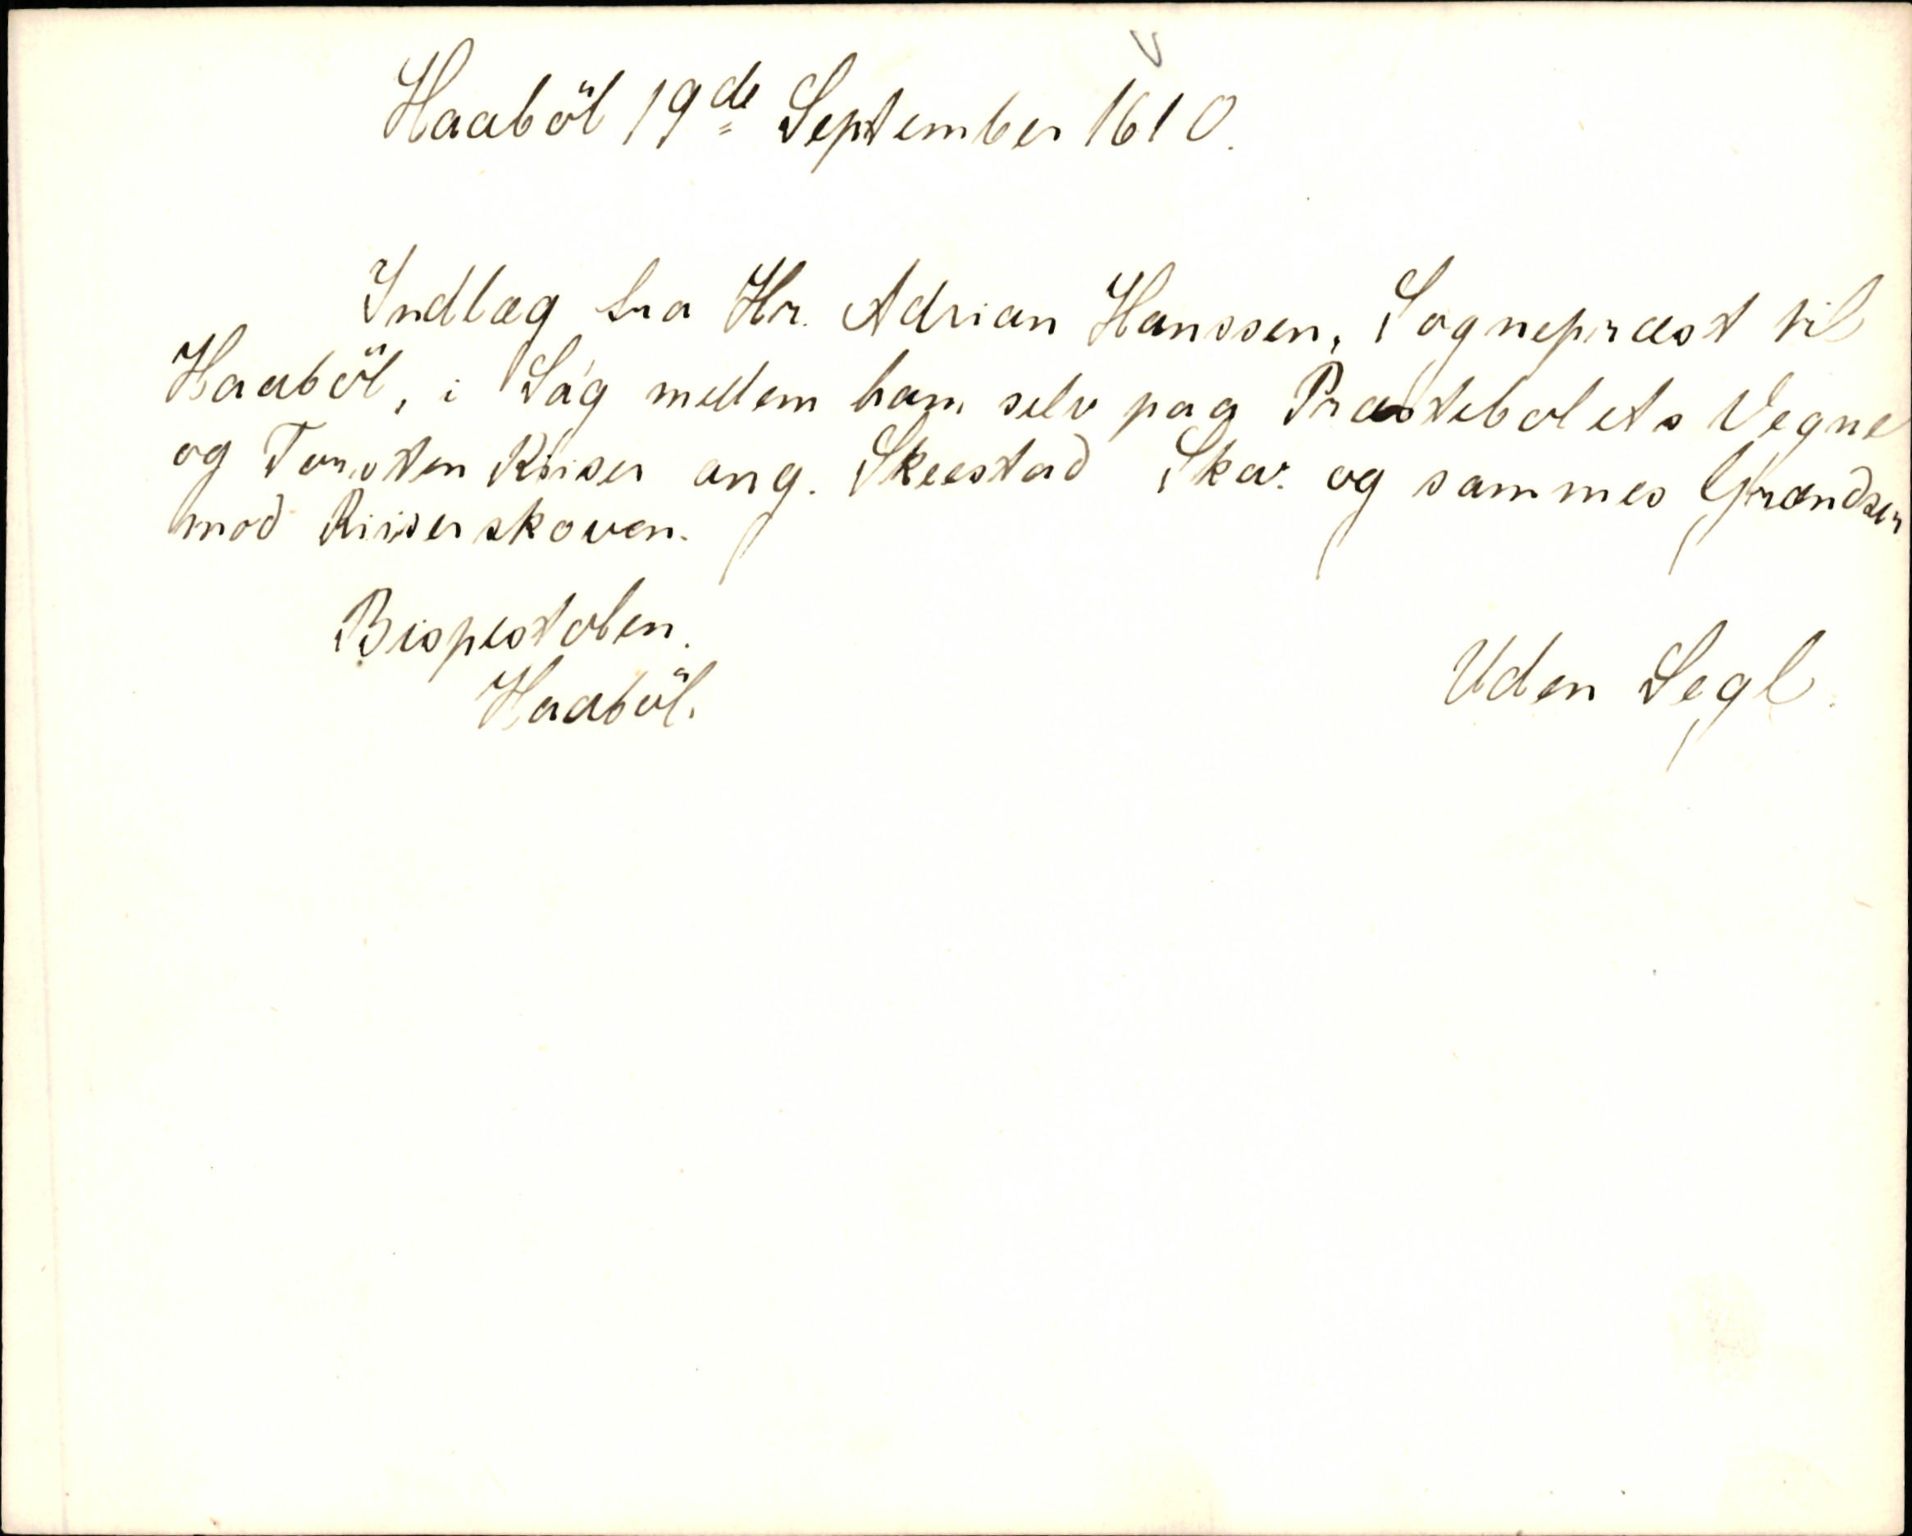 Haaböl 19de September 1610.
Indlæg fra Hr. Adrian Hanssen, Sognepræst til
Haaböl, i Sag mellem ham selv paa Præstebolets Vegne
og Torsten Riiser ang. Skeestad Skov. og sammes Grændser
mod Riiserskoven.
Bispestolen.
Haaböl.
Uden Segl.